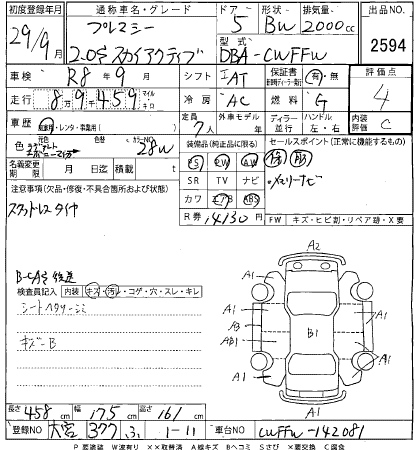 初度登録年月 通称車名・グレード ドア 形状 排気量 出品NO
29/9月 プレマシー 5 BW 2000cc
2.0S スカイアクティブ 型式 DBA-CWFFW 2594
車検 R8年9月 シフト IAT 保証書 有・無 評価点
走行 89459 マイル キロ 冷房 AC 燃料 G 4
車歴 自家用・レンタ・事業用( ) 定員 7人 外車モデル 年 ディーラー 並行 ハンドル 左・右 内装評価 C
色 元色 色替 カラーNO 28W 装備品(純正品に限る) セールスポイント(正常に機能するもの)
PS PW AW
名義変更期限 月 日迄 積載量 t SR TV ナビ メモリーナビ
注意事項(欠品・修復・不具合箇所および状態) カワ エアB ABS
スタッドレスタイヤ R券 14130 円 FW キズ・ヒビ割・リペア跡・X要
A2
B-CA3
検査員記入 内装 キズ・汚レ・コゲ・穴・スレ・キレ
シートヘタリ
A1 A1
A1 A1
A3 B1
AB1
A1 A1
A1
A1
キズーB
長さ 458cm 幅 175cm 高さ 161cm
登録NO 大宮 377 ふ 1-11 車台NO CWFFW-142081
P 要塗装 W波有り ××取替済 A線キズ Bヘコミ Sさび ×要交換 C腐食